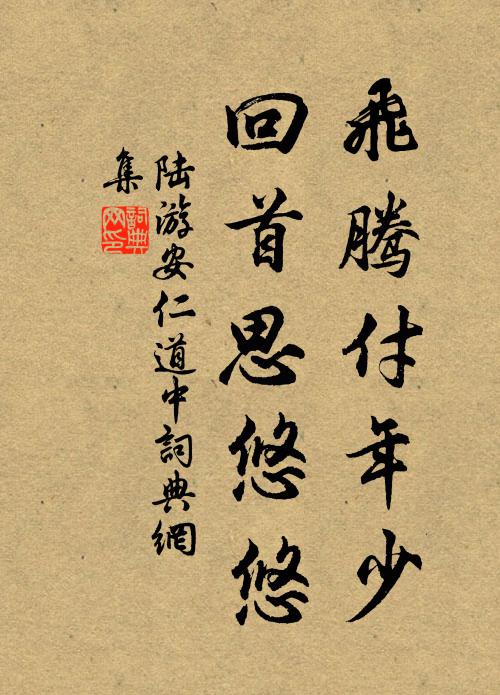 飛騰付年少
回首思悠悠
陆游安仁道中詞典網
集
詞典
网印